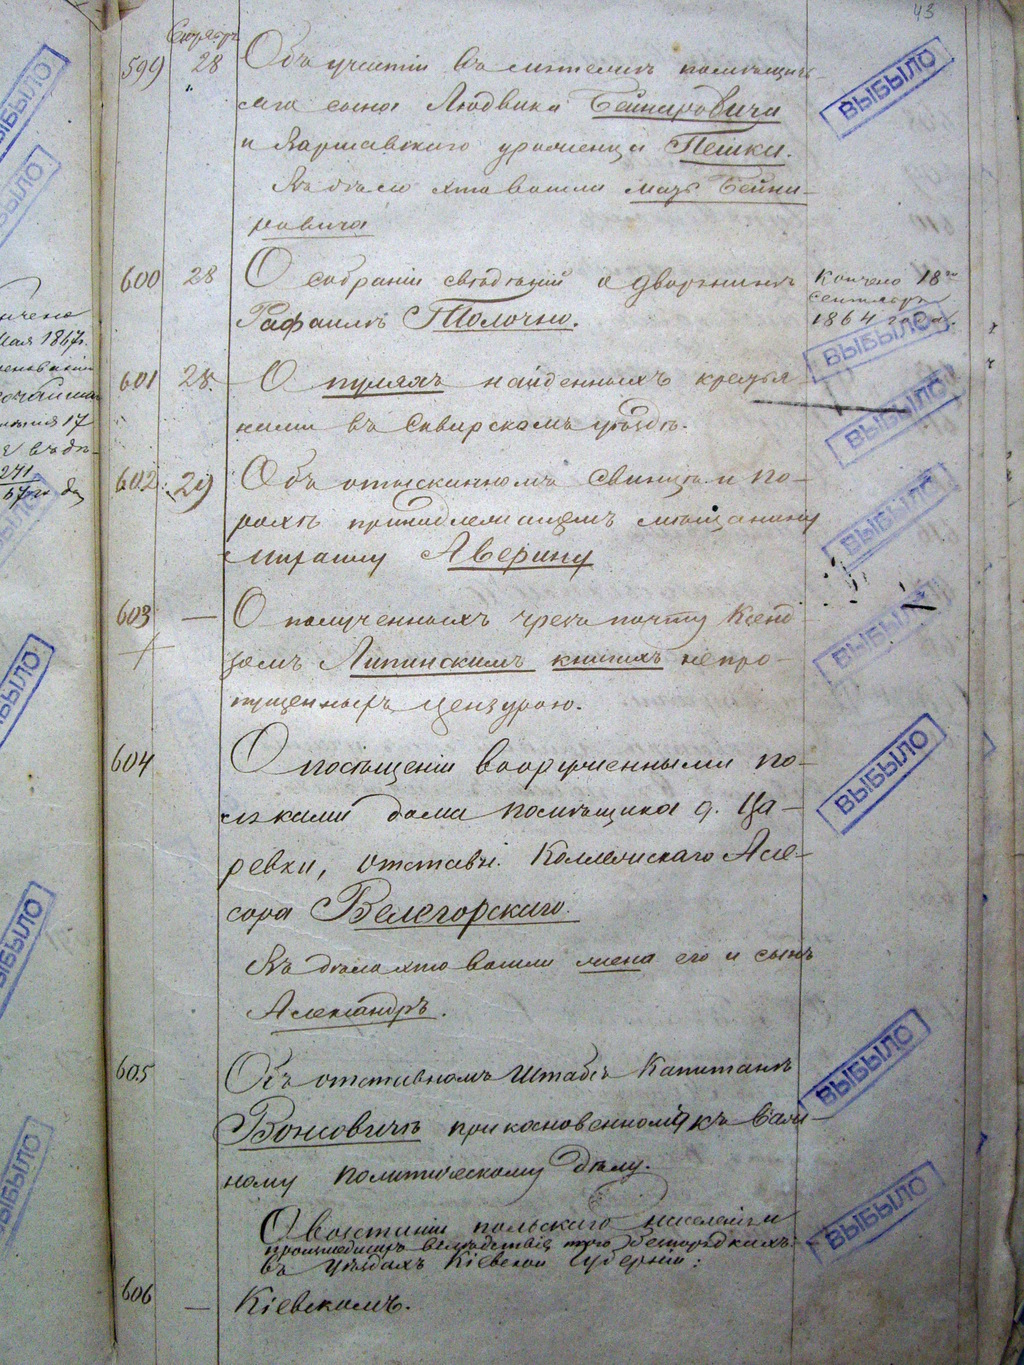 43
599
28
Объ участіи въ мятежѣ помѣщичь-
яго сына Людвика
и Варшавскаго уроженца Пешки.
Въ дѣло это вошли мать
ровича
600
28
О собраніи свѣдѣній о дворянинѣ
Рафаилѣ Толочко.
Кончено 18го
Сентября
1864 года.
601
28.
О пуляхъ найденныхъ крестья-
нами въ Сквирскомъ уѣздѣ.
602
29
Объ отысканномъ свинцѣ и по-
рохѣ принадлежащемъ мѣщанину
Михаилу Аверину
603
—
О полученныхъ чрезъ почту Ксенд-
зомъ Липинскимъ книгахъ непро-
пущенныхъ цензурою.
604
О посѣщеніи вооруженными по-
ляками дома помѣщика д. Ца-
ревки, отставн. Коллежскаго Асе-
сора Велегорскаго.
Въ дѣло это вошли жена его и сынъ
Александръ.
605
Объ отставномъ Штабсъ Капитанѣ
Вонсовичѣ прикосновенномъ къ важ-
ному политическому дѣлу.
О возстаніи польскаго населенія и
происшедшихъ вслѣдствіе того безпорядкахъ
въ уѣздахъ Кіевской Губерніи:
606
—
Кіевскомъ.
ВЫБЫЛО
ВЫБЫЛО
ВЫБЫЛО
ВЫБЫЛО
ВЫБЫЛО
ВЫБЫЛО
ВЫБЫЛО
ВЫБЫЛО